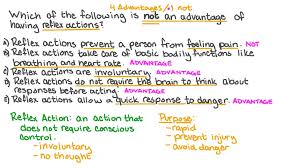 4 Advantages/1 not
Which of the following is not an advantage of
having reflex actions?
a) Reflex actions prevent a person from feeling pain. NOT
b) Reflex actions take care of basic bodily functions like
breathing and heart rate. ADVANTAGE
c) Reflex actions are involuntary. ADVANTAGE
d) Reflex actions do not require the brain to think about
responses before acting. ADVANTAGE
e) Reflex actions allow a quick response to danger. ADVANTAGE
Reflex Action: an action that
does not require conscious
control.
- involuntary
- no thought
Purpose:
- rapid
- prevent injury
- avoid danger